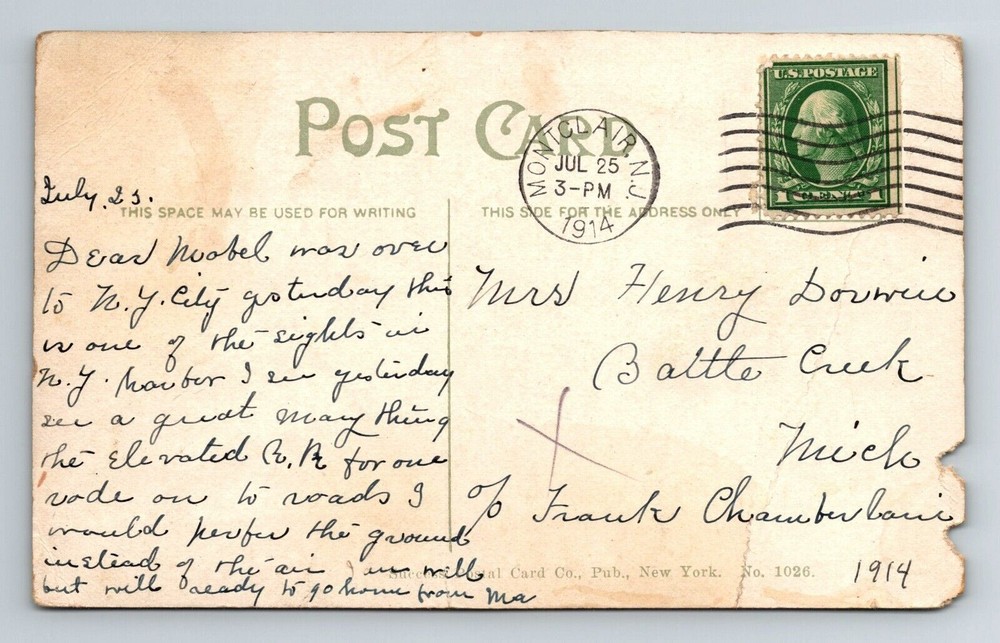 POST CARD
MONTCLAIR, N.J.
JUL 25
3-PM
1914
U.S. POSTAGE
1 1
July. 25.
THIS SPACE MAY BE USED FOR WRITING
THIS SIDE FOR THE ADDRESS ONLY
Dear Mabel was over
to N.Y. City yesturday this
is one of the sights in
N.Y. harbor I see yesterday
see a great many thing
the Elevated R.R for one
rode on to roads I
would perfer the ground
instead of the air I am well
but will ready to go home from Ma
Mrs Henry
Battle Creek
Mich
c/o Frank Chamberlain
Success Postal Card Co., Pub., New York. No. 1026.
1914